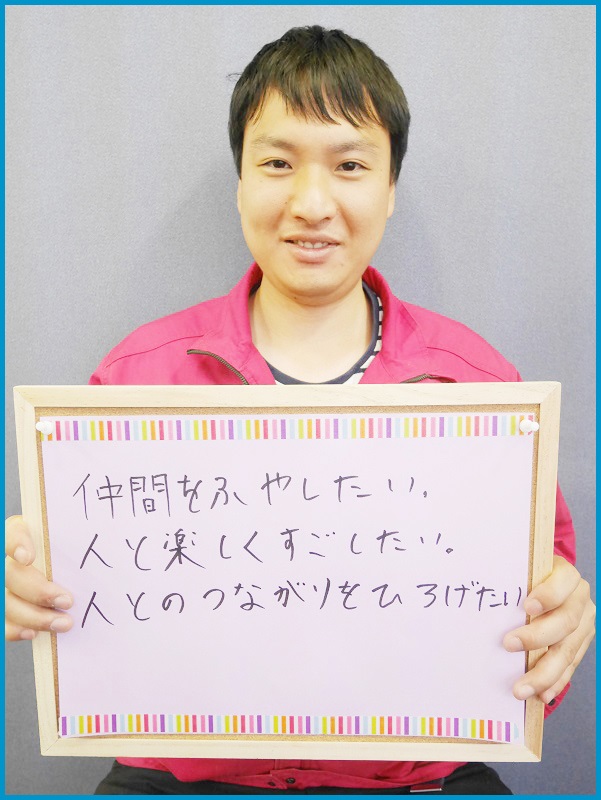 仲間をふやしたい。
人と楽しくすごしたい。
人とのつながりをひろげたい